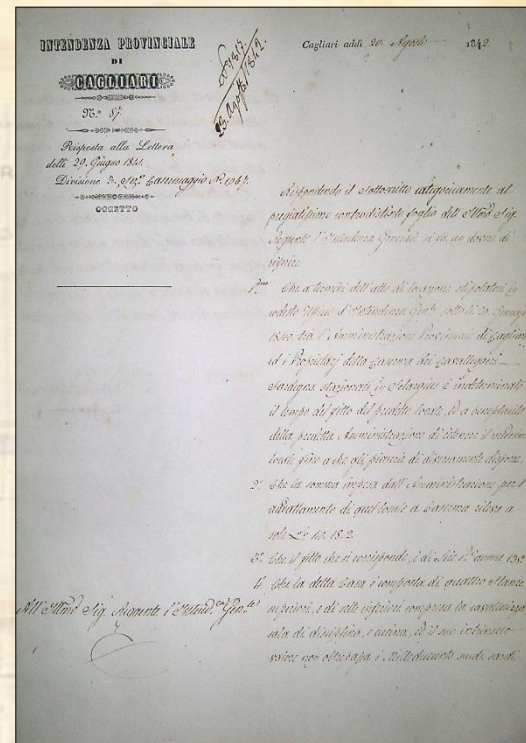 INTENDENZA PROVINCIALE
DI
CAGLIARI
N.º 87.
Risposta alla Lettera
delli 29. Giugno 1841.
Divisione 3. Casermaggio Nº 1967.
OGGETTO
23. Agosto 1842.
Cagliari addì 20. Agosto 1842.
Rispondendo il Sottoscritto categoricamente al
pregiatissimo foglio dell' Illmo Sig.
Reggente l'Intendenza Generale si fa un dovere di
Che a termini dell' atto di locazione stipolatosi in
Uffizio d'Intendenza Genle sotto li 20
1840 tra l'Amministrazione Provinciale di Cagliari
ed i Proprietarj della Caserma dei Cavalleggieri
Sardegna stazionati in Selargius è indeterminato
il tempo del fitto del locale, ed a
della Amministrazione di ritenere il medesimo
locale fino a che gli piaccia di diversamente disporre.
2º Che la somma dall' Amministrazione per l'
adattamento di quel locale a Caserma rileva a
sole
3º Che il fitto che si corrisponde, è di annue
4º Che la detta Casa è composta di quattro stanze
superiori, e di inferiori compresa la
sala di disciplina, e cucina, ed il suo
valore non oltrepassa i Milleduecento scudi sardi.
All' Illmo Sig. Reggente l'Intendza Genle